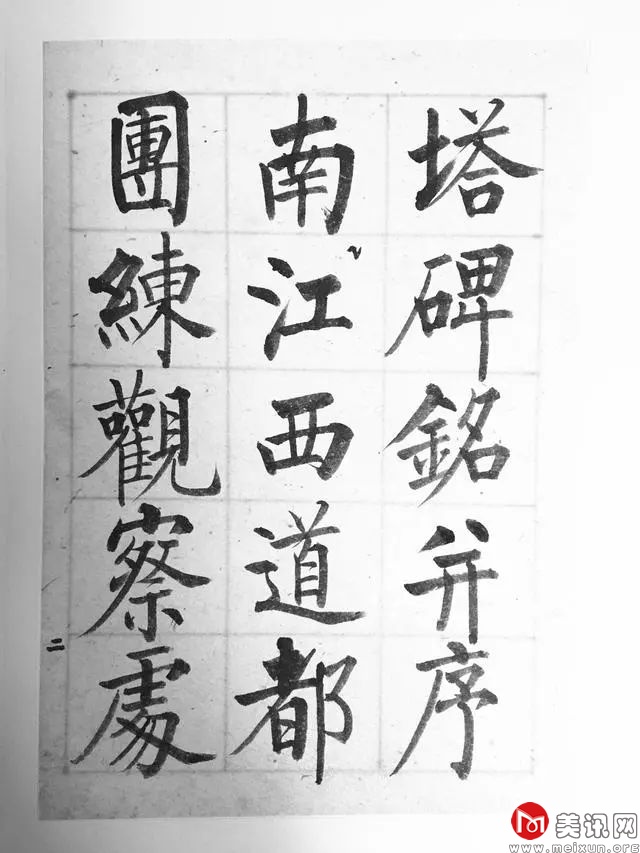 塔碑銘并序
南江西道都
團練觀察處
二
美讯网
www.meixun.org